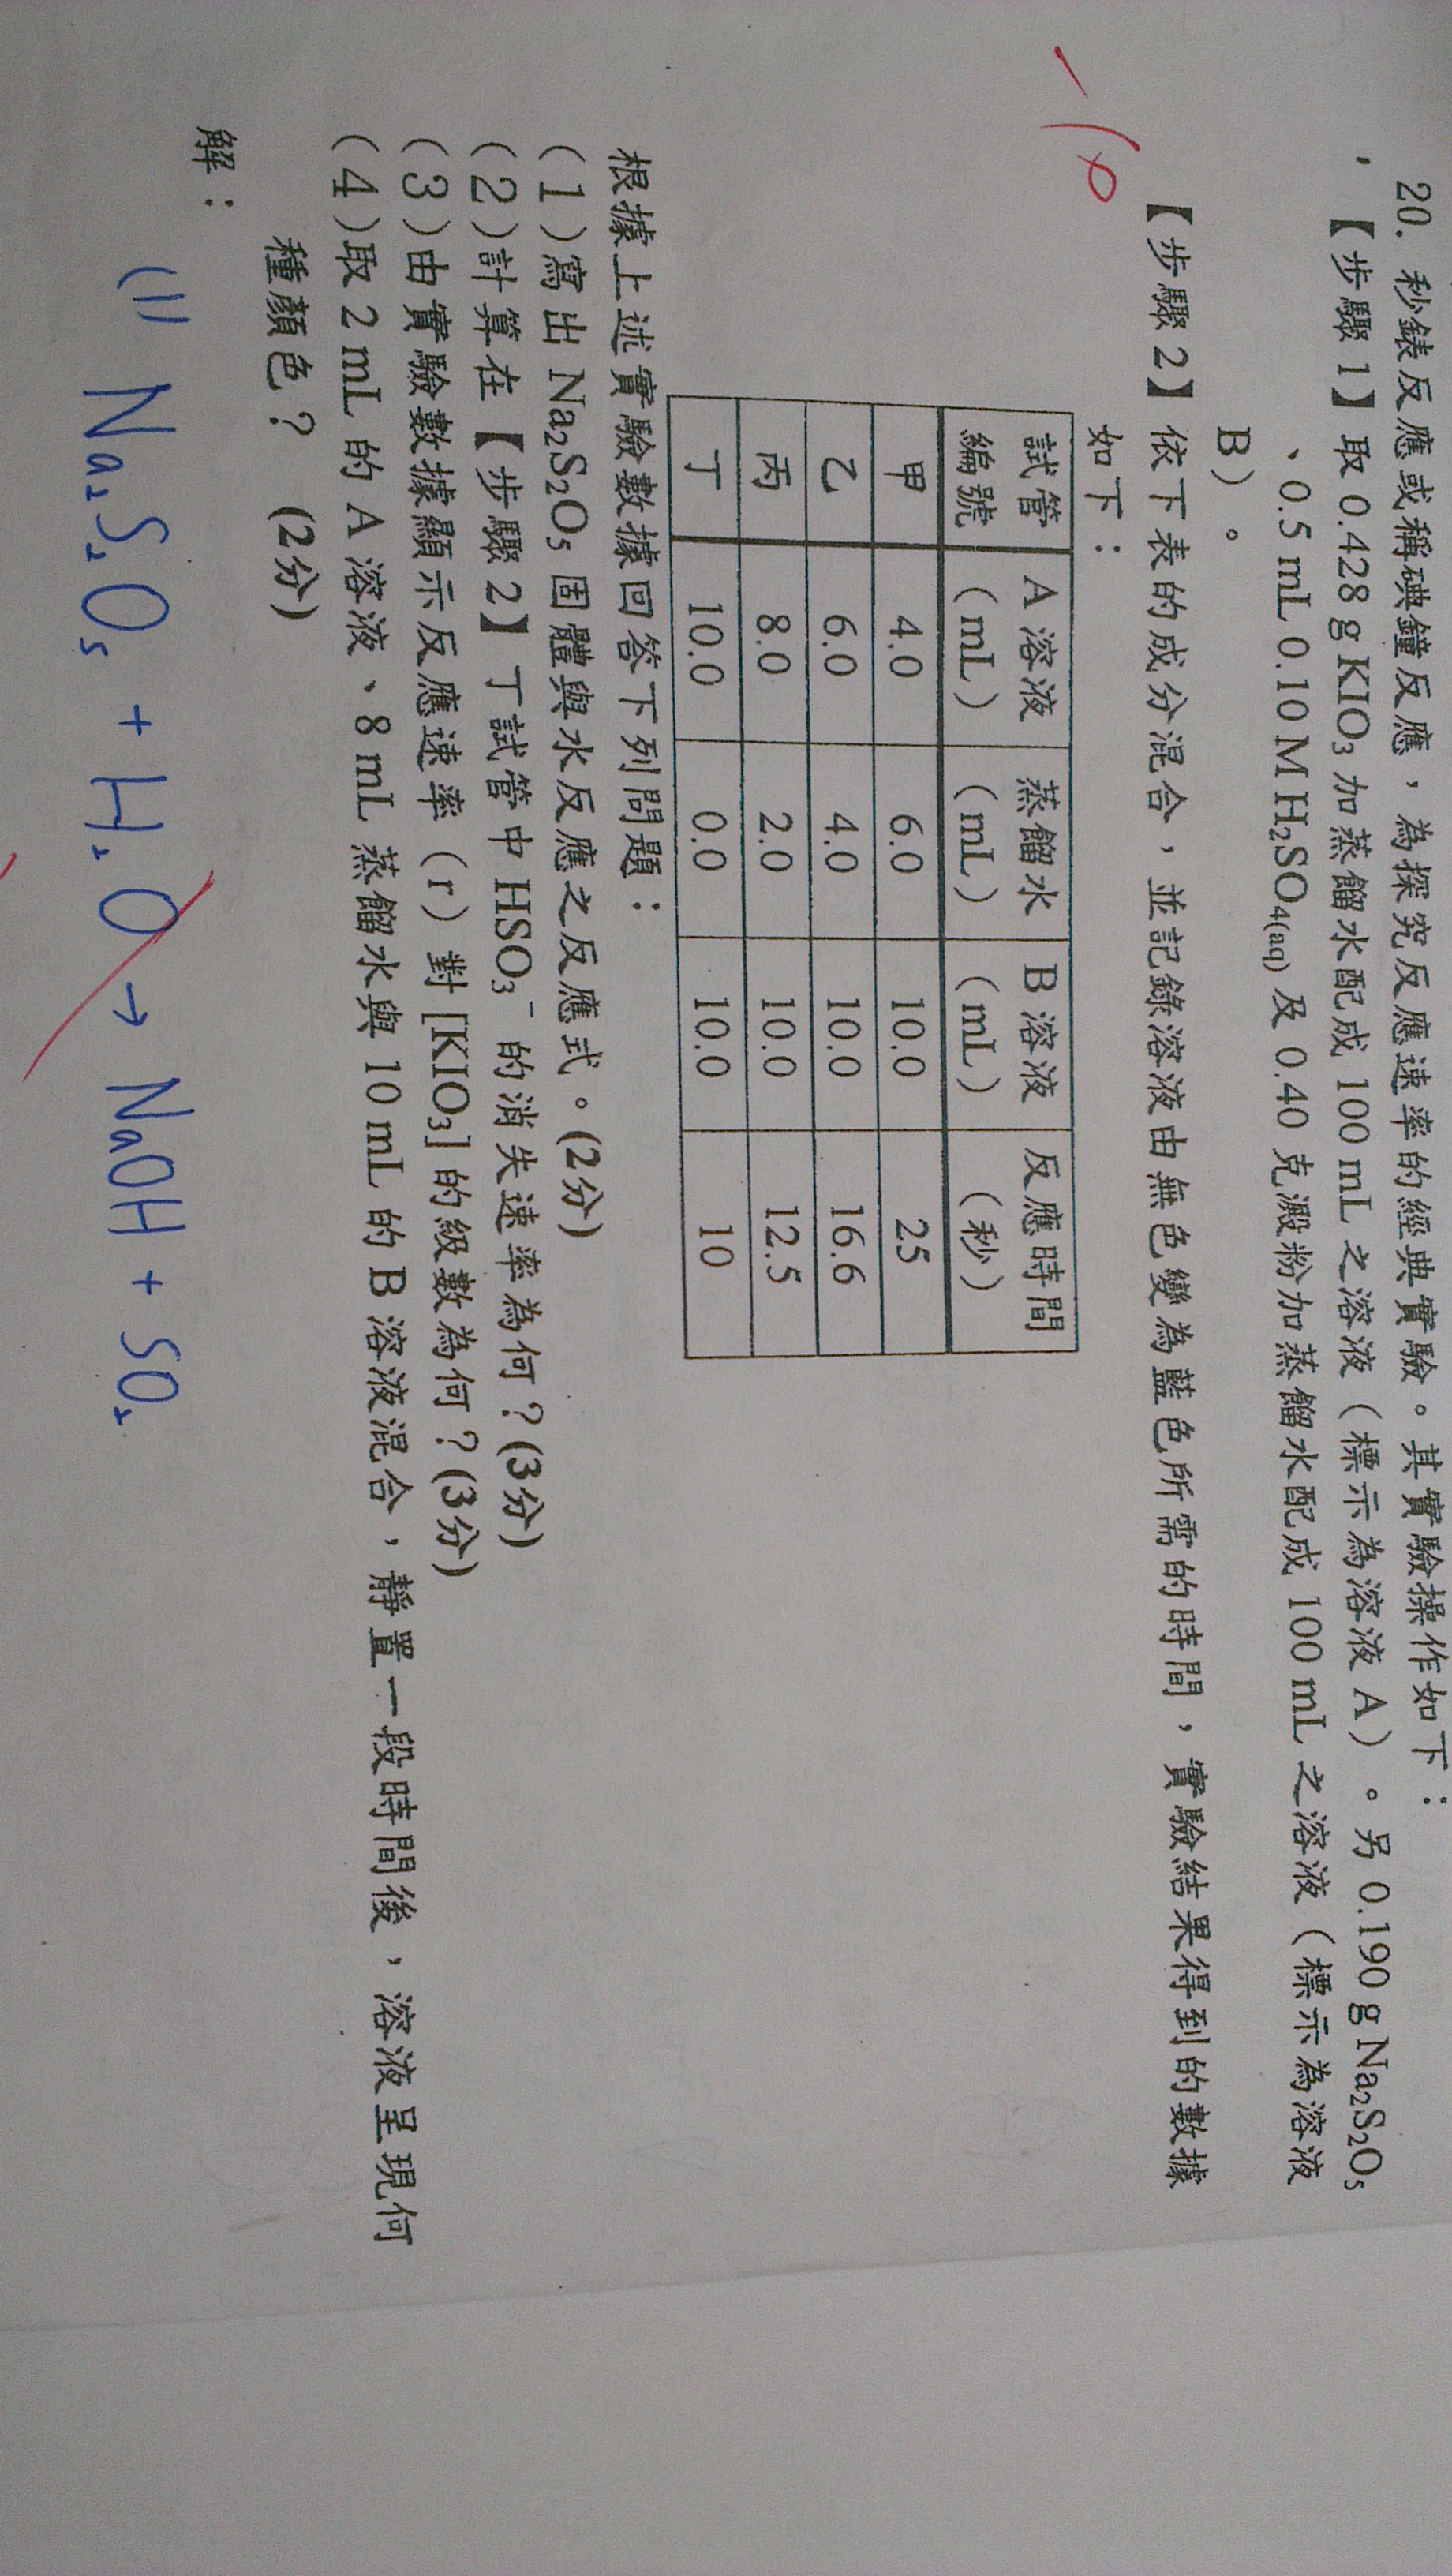 20. 秒錶反應或稱碘鐘反應，為探究反應速率的經典實驗。其實驗操作如下：
【步驟 1】取 0.428 g KIO₃ 加蒸餾水配成 100 mL 之溶液（標示為溶液 A）。另 0.190 g Na₂S₂O₅
、0.5 mL 0.10 M H₂SO₄(aq) 及 0.40 克澱粉加蒸餾水配成 100 mL 之溶液（標示為溶液
B）。
【步驟 2】依下表的成分混合，並記錄溶液由無色變為藍色所需的時間，實驗結果得到的數據
如下：
試管編號 A 溶液（mL） 蒸餾水（mL） B 溶液（mL） 反應時間（秒）
甲 4.0 6.0 10.0 25
乙 6.0 4.0 10.0 16.6
丙 8.0 2.0 10.0 12.5
丁 10.0 0.0 10.0 10
根據上述實驗數據回答下列問題：
（1）寫出 Na₂S₂O₅ 固體與水反應之反應式。(2分)
（2）計算在【步驟 2】丁試管中 HSO₃⁻ 的消失速率為何？(3分)
（3）由實驗數據顯示反應速率（r）對 [KIO₃] 的級數為何？(3分)
（4）取 2 mL 的 A 溶液、8 mL 蒸餾水與 10 mL 的 B 溶液混合，靜置一段時間後，溶液呈現何
種顏色？ (2分)
解：
(1) Na₂S₂O₅ + H₂O → NaOH + SO₂